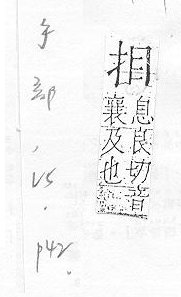 息良切音
襄及也
手部, 15. p42.